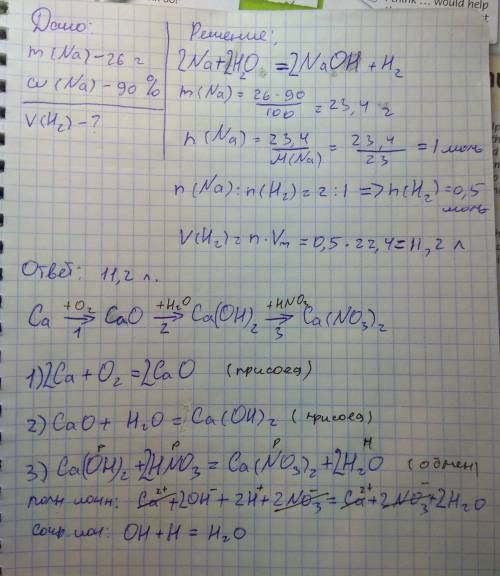 I think ... would help
Дано:
m(Na) – 26 г
ω(Na) – 90 %
V(H₂) – ?
Решение:
2Na+2HO₂ = 2NaOH + H₂
m(Na) = 26·90/100 = 23,4 г
n(Na) = 23,4/M(Na) = 23,4/23 = 1 моль
n(Na) : n(H₂) = 2 : 1 => n(H₂) = 0,5
моль
V(H₂) = n·Vm = 0,5·22,4 = 11,2 л
Ответ: 11,2 л.
Ca +O₂→1 CaO +H₂O→2 Ca(OH)₂ +HNO₃→3 Ca(NO₃)₂
1) 2Ca + O₂ = 2CaO (присоед)
2) CaO + H₂O = Ca(OH)₂ (присоед)
P P P H
3) Ca(OH)₂ + 2HNO₃ = Ca(NO₃)₂ + 2H₂O (обмен)
полн ионн: Ca²⁺ + 2OH⁻ + 2H⁺ + 2NO₃⁻ = Ca²⁺ + 2NO₃⁻ + 2H₂O
сокр ион: OH + H = H₂O